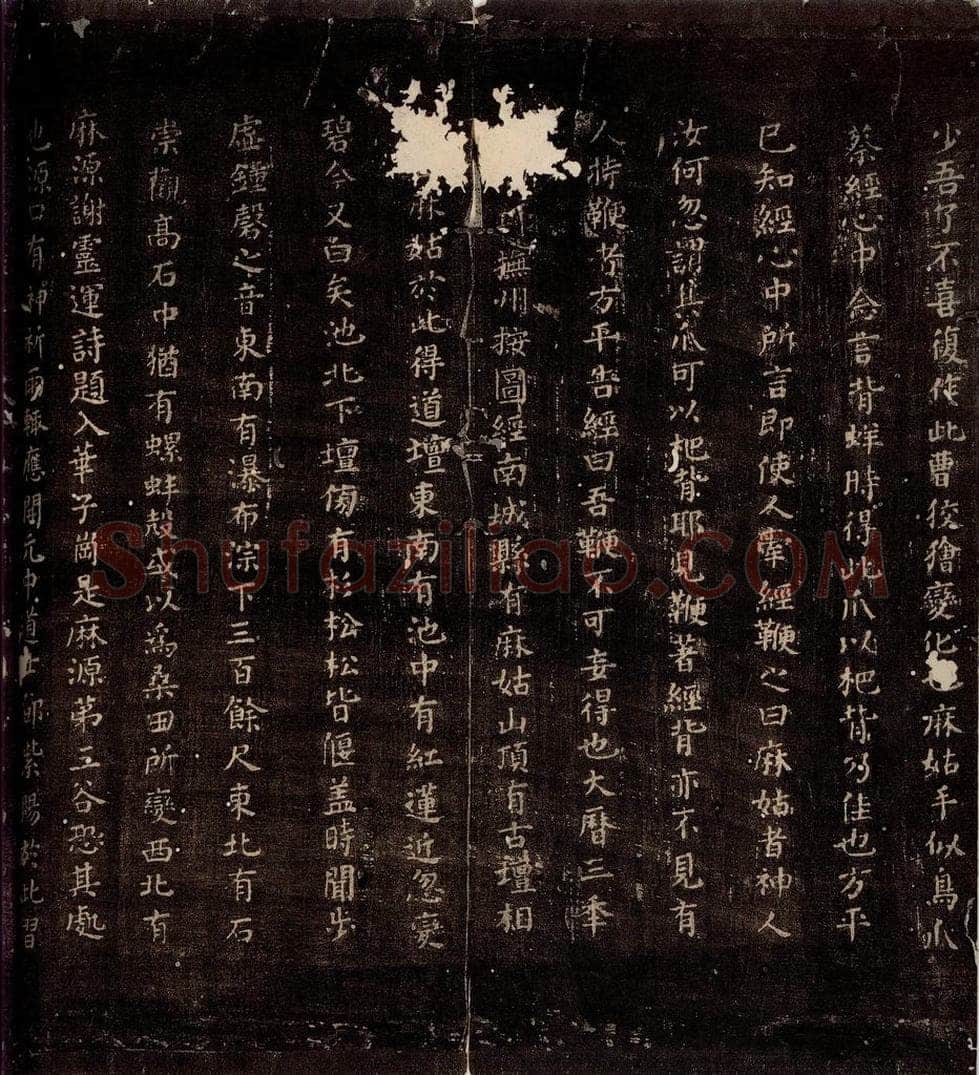 少吾了不喜復作此曹狡獪變化麻姑手似鳥爪
蔡經心中念言背蛘時得此爪以杷背乃佳也方平
已知經心中所言即使人牽經鞭之曰麻姑者神人
汝何忽謂其爪可以爬背耶見鞭著經背亦不見有
人持鞭者方平告經曰吾鞭不可妄得也大曆三年
撫州按圖經南城縣有麻姑山頂有古壇相
麻姑於此得道壇東南有池中有紅蓮近忽變
碧今又白矣池北下壇傍有杉松松皆偃盖時聞步
虛鐘磬之音東南有瀑布淙下三百餘尺東北有石
崇觀高石中猶有螺蚌殼或以為桑田所變西北有
麻源謝靈運詩題入華子崗是麻源第三谷恐其處
也源口有神祈雨輒應開元中道士鄧紫陽於此習
Shufaziliao.COM